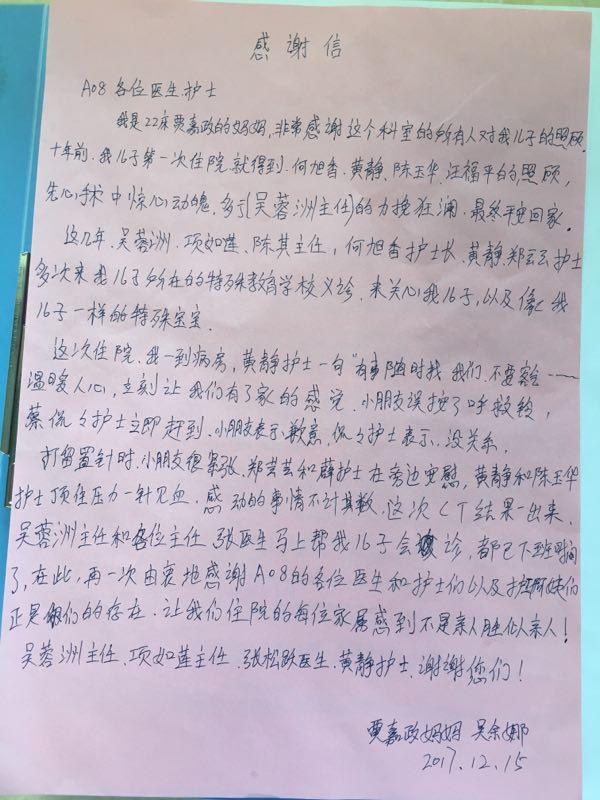 感谢信
A08各位医生护士
我是22床贾嘉政的妈妈,非常感谢这个科室的所有人对我儿子的照顾.
十年前.我儿子第一次住院就得到.何旭香.黄静.陈玉华.汪福平的照顾,
先心手术中惊心动魄,多亏(吴蓉洲主任)的力挽狂澜.最终平安回家.
这几年.吴蓉洲.项如莲、陈其主任,何旭香护士长、黄静.郑云云护士
多次来我儿子所在的特殊教育学校义诊.来关心我儿子,以及像我
儿子一样的特殊宝宝.
这次住院.我一到病房,黄静护士一句“有事随时找我们.不要客气——
温暖人心,立刻让我们有了家的感觉.小朋友误按了呼救铃,
蔡侃侃护士立即赶到.小朋友表示歉意,侃侃护士表示.没关系.
打留置针时.小朋友很紧张.郑芸芸和薛护士在旁边安慰,黄静和陈玉华
护士顶住压力一针见血.感动的事情不计其数.这次CT结果一出来.
吴蓉洲主任和各位主任.张医生马上帮我儿子会诊,都已下班时间
了,在此,再一次由衷地感谢A08的各位医生和护士们以及护工阿姨们
正是你们的存在.让我们住院的每位家属感到不是亲人胜似亲人!
吴蓉洲主任、项如莲主任、张松跃医生.黄静护士、谢谢您们!
贾嘉政妈妈 吴余娜
2017.12.15